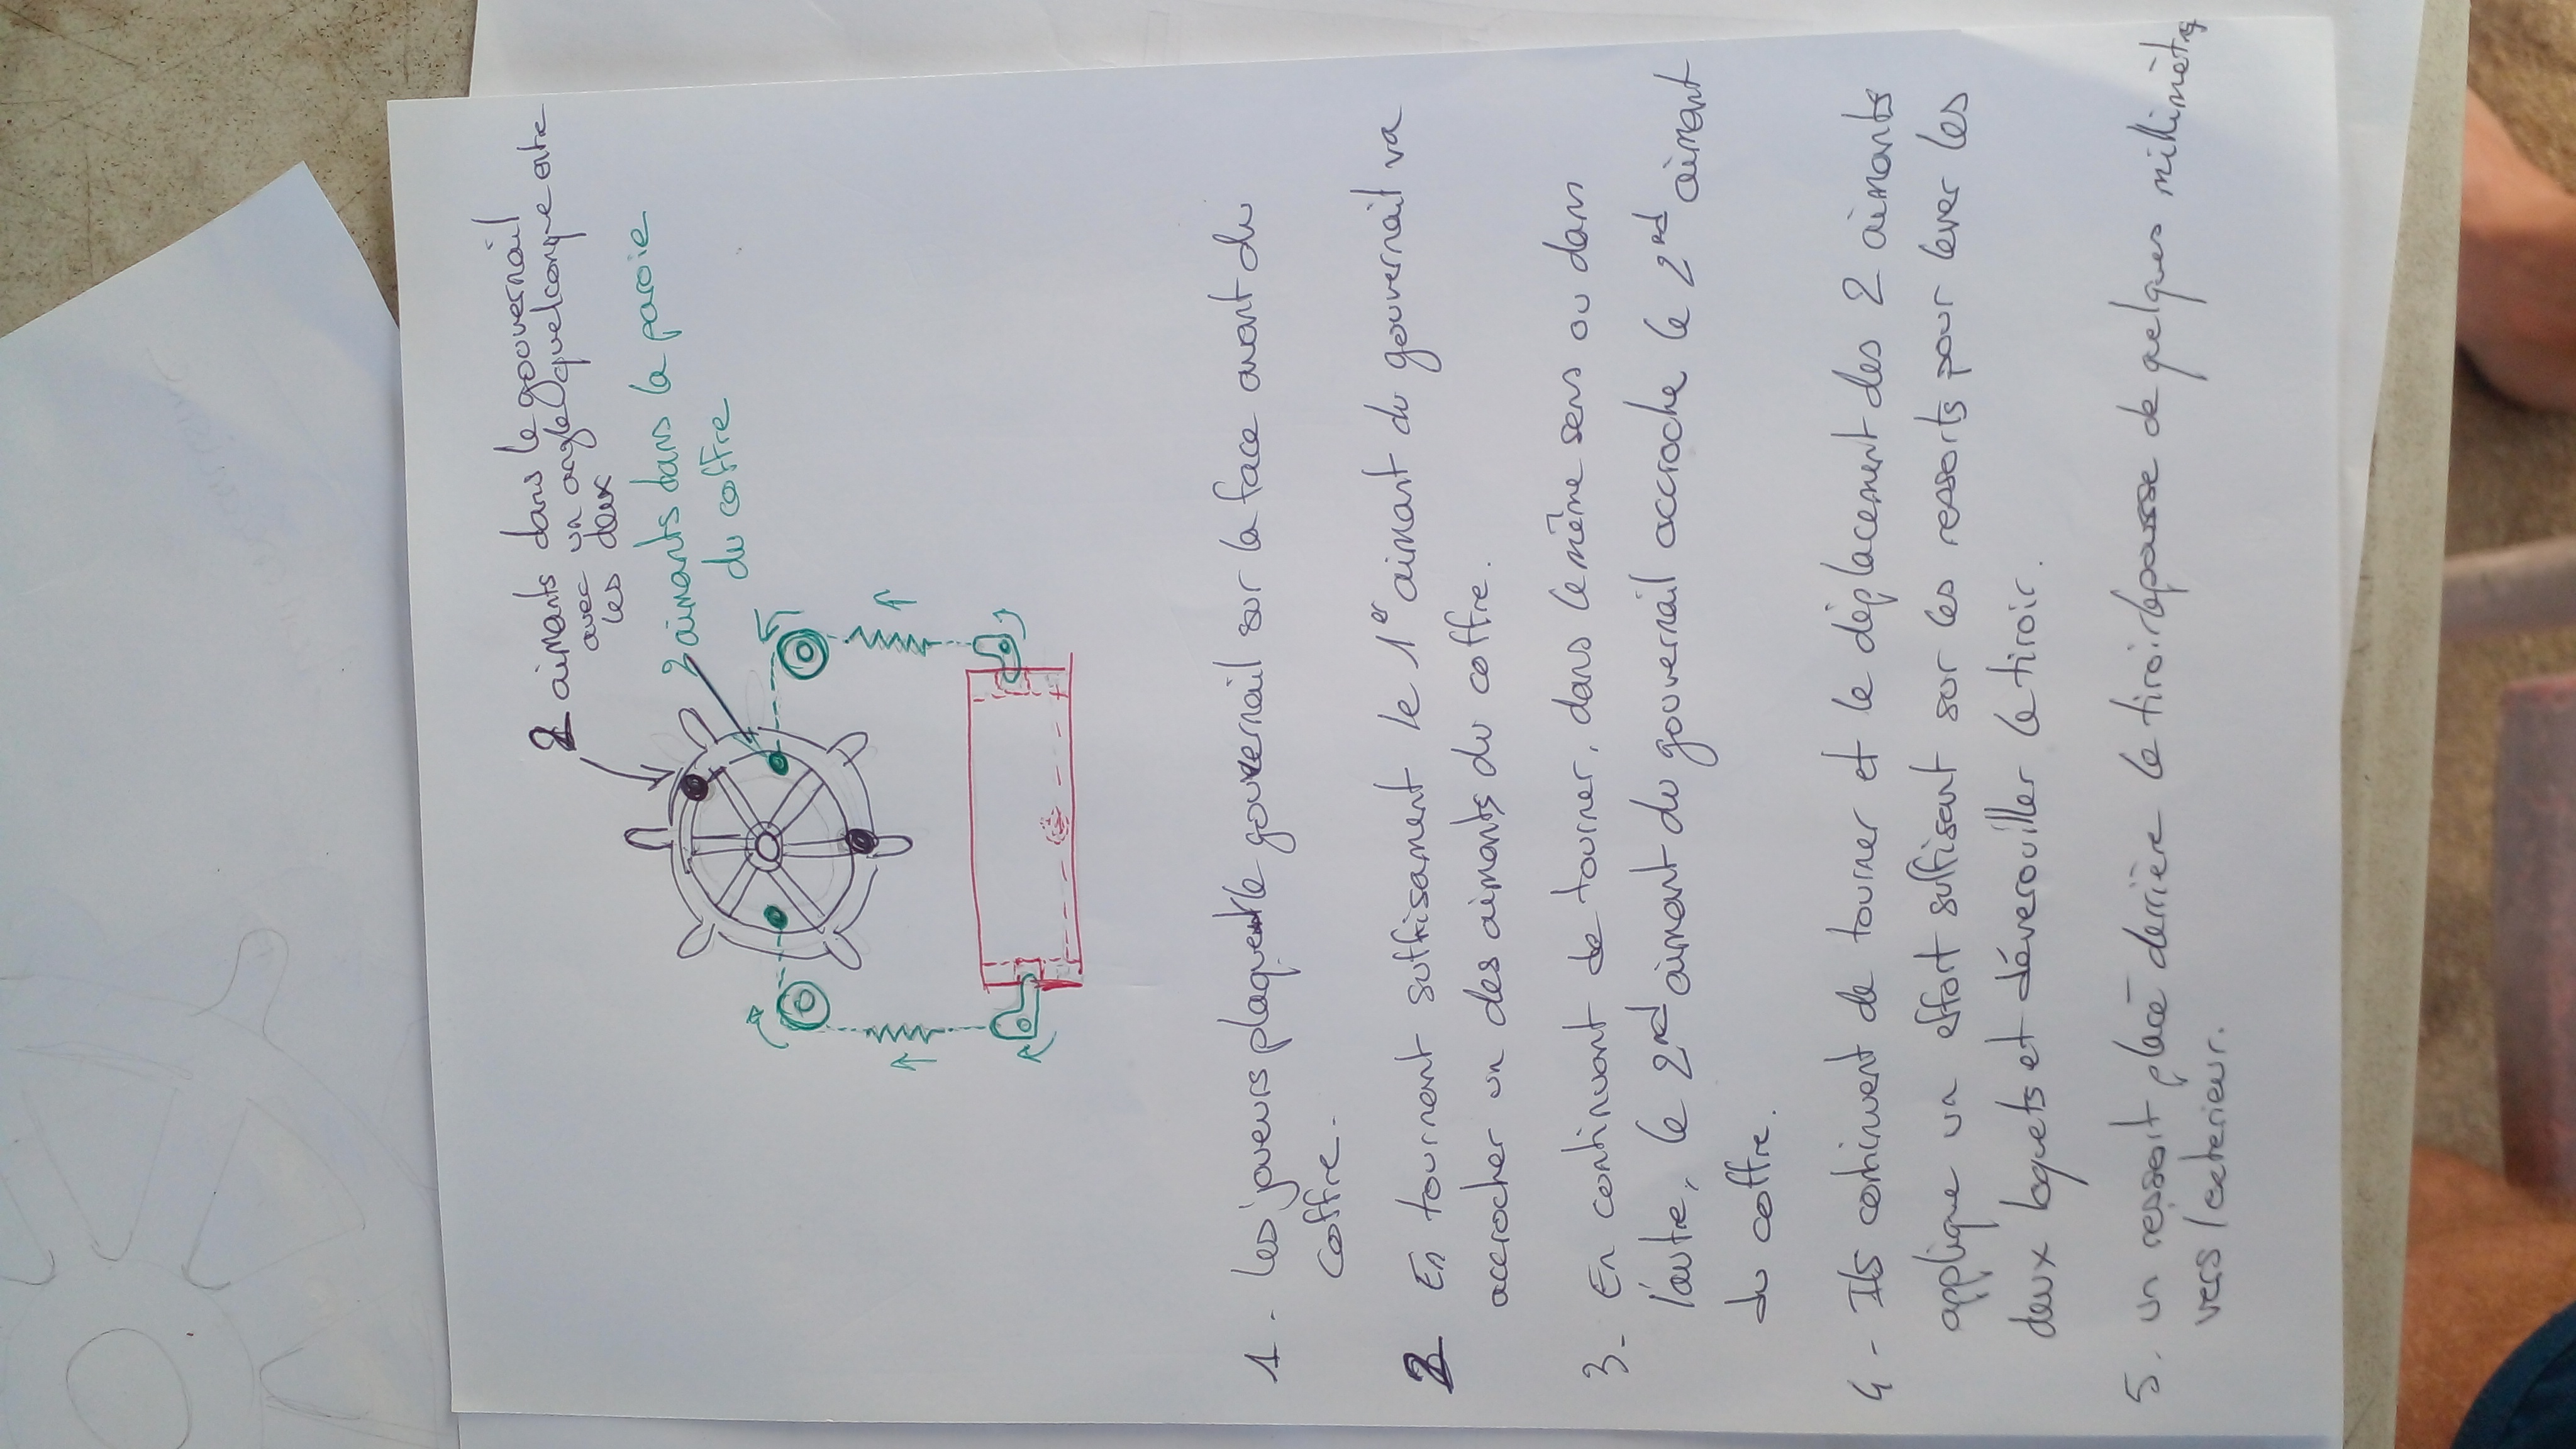 2 aimants dans le gouvernail
avec un angle quelconque entre
les deux
2 aimants dans la paroie
du coffre
1 - Les joueurs plaquent le gouvernail sur la face avant du
coffre.
2 En tournant suffisament le 1er aimant du gouvernail va
accrocher un des aimants du coffre.
3 - En continuant de tourner, dans le même sens ou dans
l'autre, le 2nd aimant du gouvernail accroche le 2nd aimant
du coffre.
4 - Ils continuent de tourner et le déplacement des 2 aimants
applique un effort suffisant sur les ressorts pour lever les
deux loquets et déverouiller le tiroir.
5. un ressort placé derrière le tiroir le pousse de quelques millimètres
vers l'exterieur.